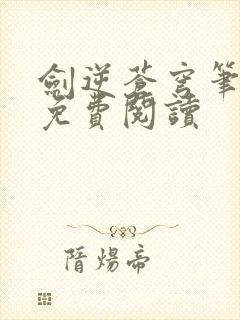 劍逆蒼穹筆
免費閱讀
隋煬帝